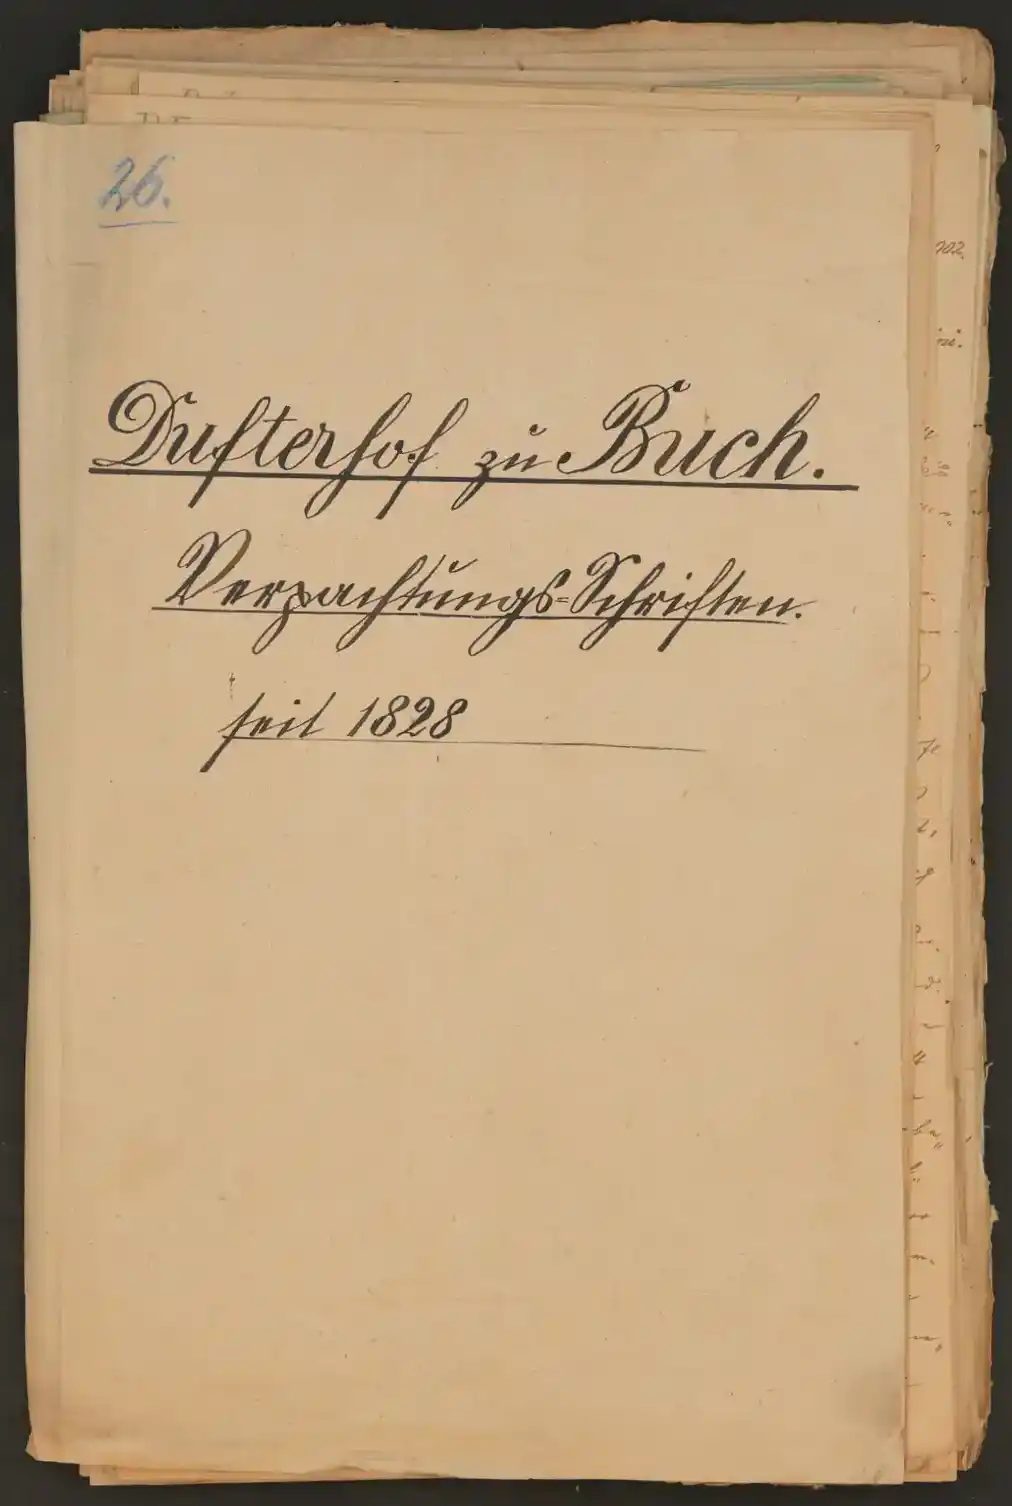 26.
Dufterhof zu Buch.
Verpachtungs-Schriften.
seit 1828